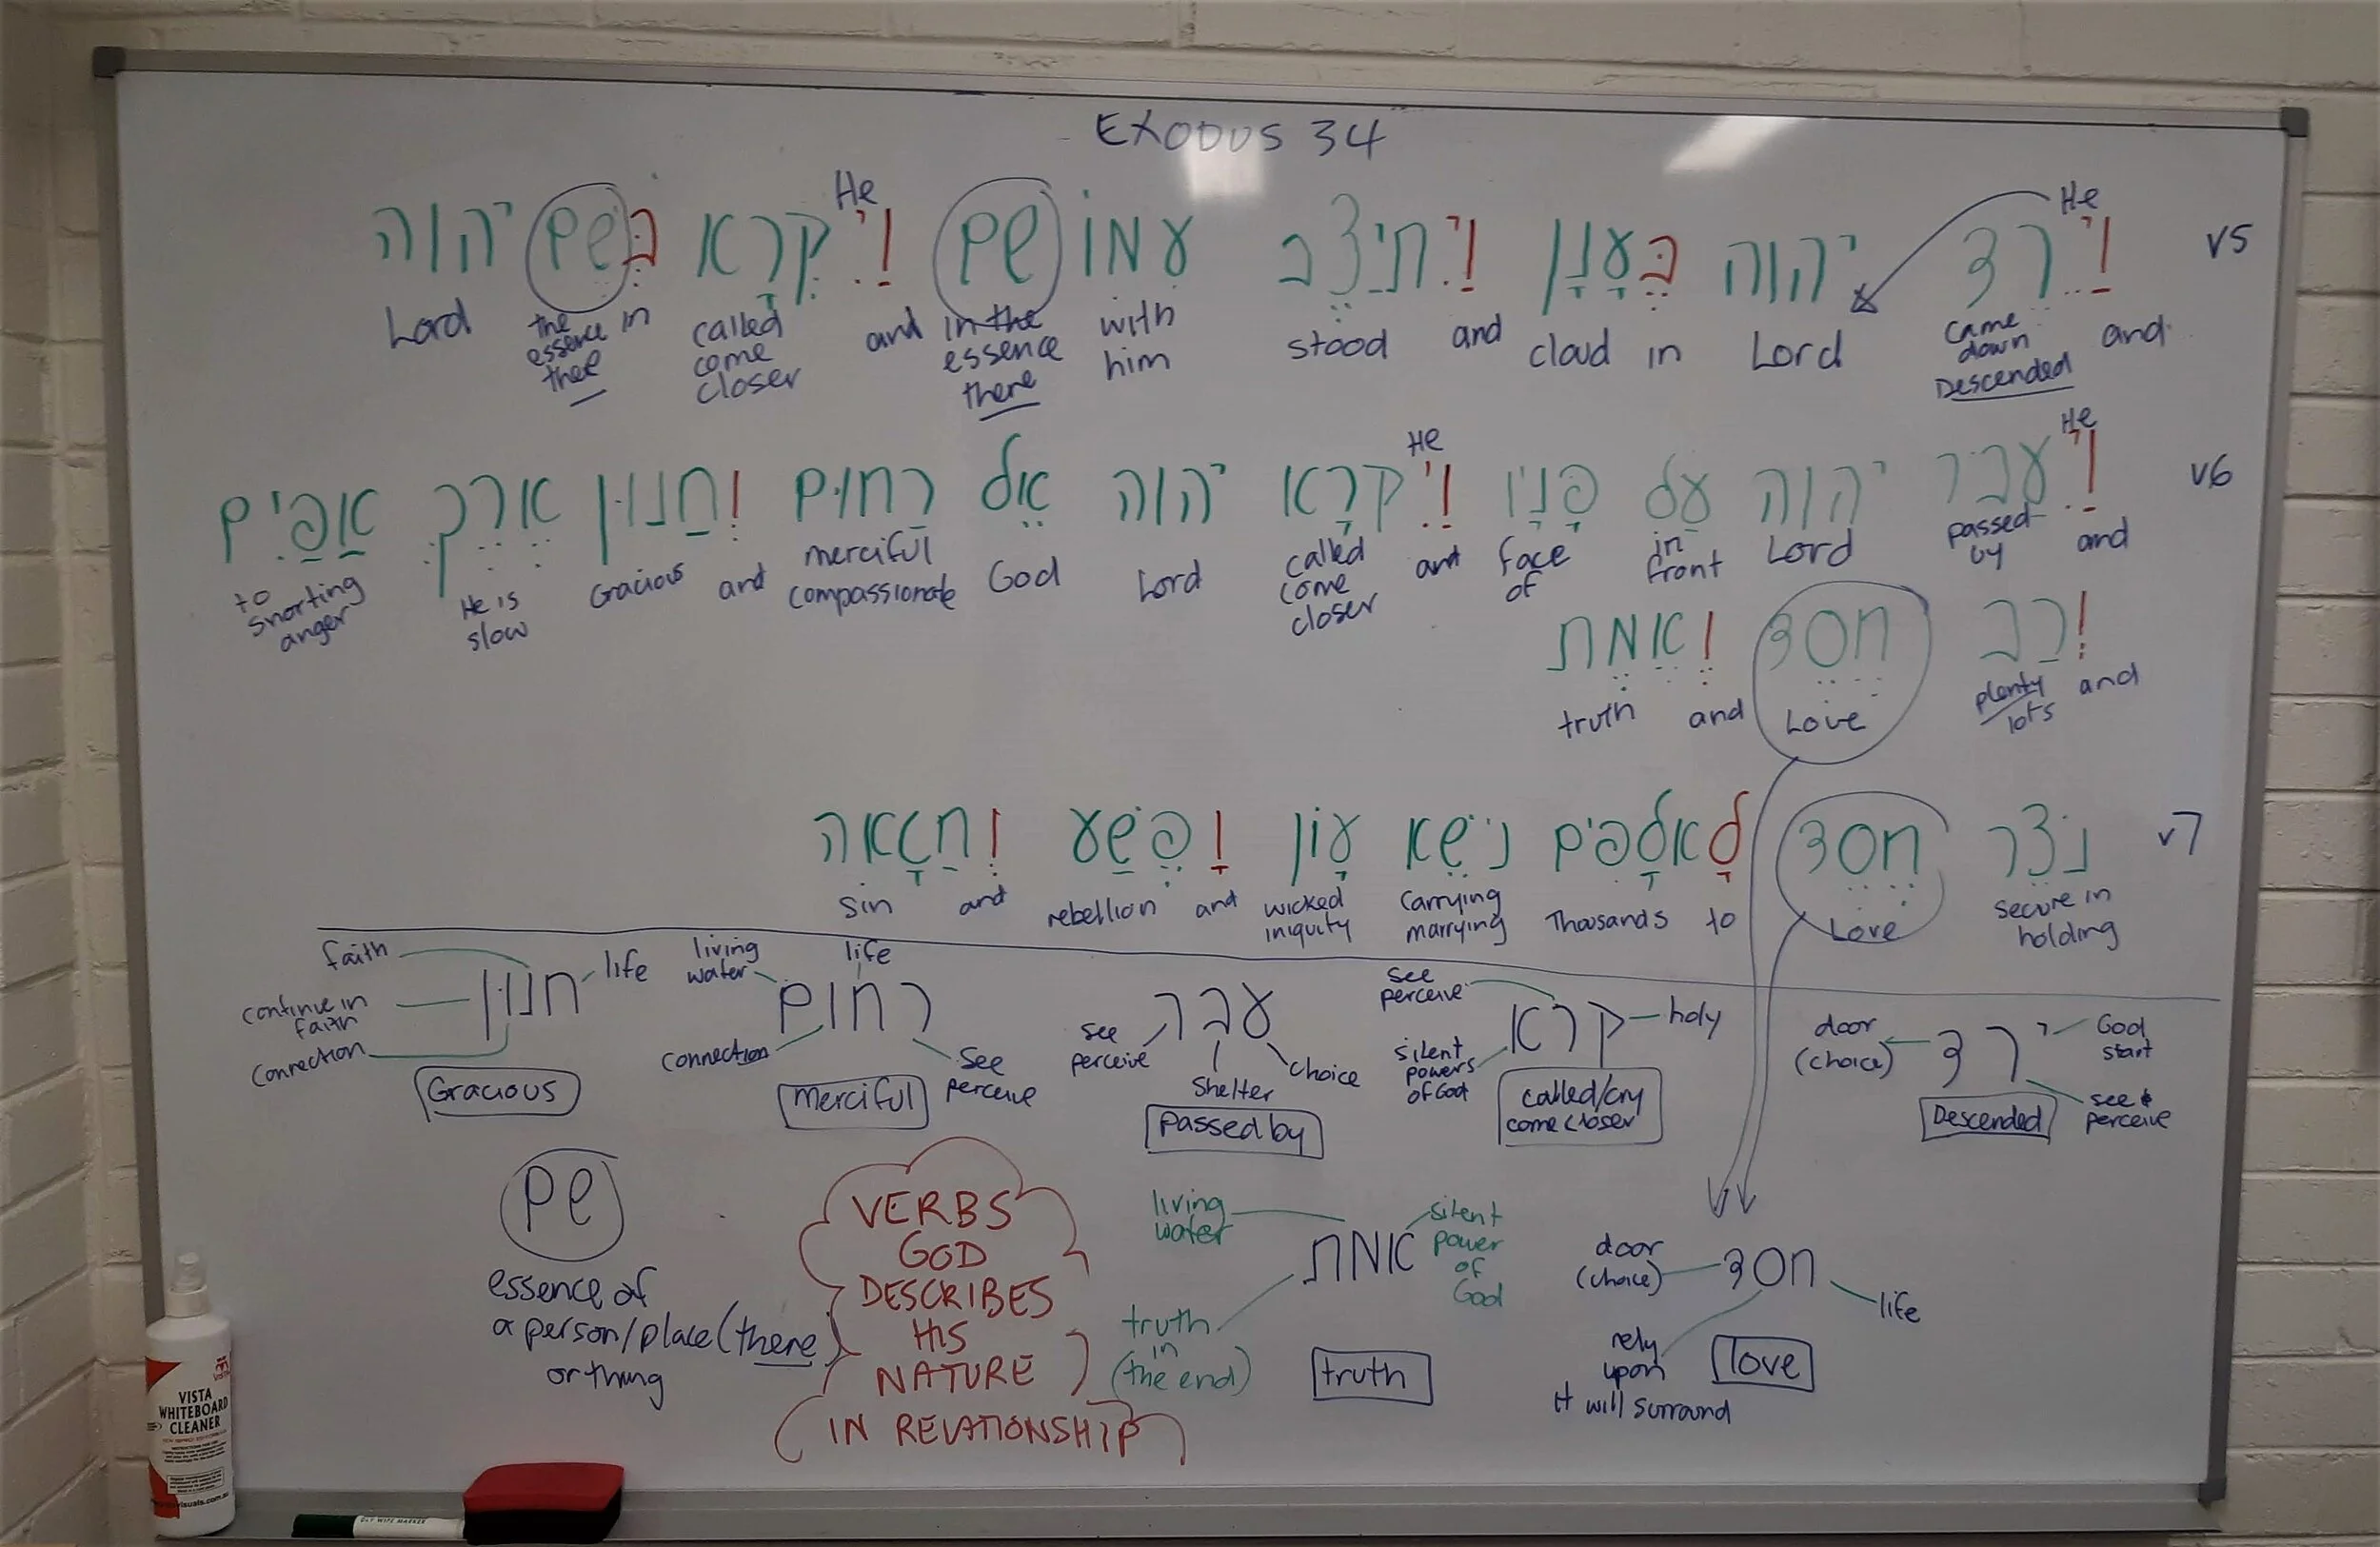 EXODUS 34
He
He
v5 וַיֵּרֶד יהוה בֶּעָנָן וַיִּתְיַצֵּב עִמוֹ שם וַיִּקְרָא בְּשֵׁם יהוה
and came down Descended Lord in cloud and stood with him in the essence there and called come closer in the essence there Lord
He
He
v6 וַיַּעבר יהוה עַל פָּנָיו וַיִּקְרָא יהוה אֵל רַחוּם וְחַנוּן אֶרֶךְ אַפַּיִם
and passed by Lord in front face of and called come closer Lord God merciful compassionate and Gracious He is slow to snorting anger
וְרַב חסד וֶאֱמֶת
and plenty lots Love and truth
v7 נֹצֵר חֶסֶד לָאלָפִים נֹשֵׂא עָוֹן וָפֶשַׁע וְחַטָאָה
secure in holding Love to Thousands Carrying marrying wicked iniquity and rebellion and sin
faith
life
continue in faith
connection
חנון
Gracious
living water
life
רחום
connection
see perceive
merciful
עבר
see perceive
Shelter
choice
passed by
see perceive
קרא
holy
silent powers of God
called/cry
come closer
door (choice)
ירד
God start
see & perceive
Descended
שם
essence of
a person/place (there)
or thing
VERBS
GOD
DESCRIBES
HIS
NATURE
IN RELATIONSHIP
living water
אמת
silent power of God
truth in (the end)
truth
door (choice)
חסד
life
rely upon
it will surround
love
VISTA
WHITEBOARD
CLEANER